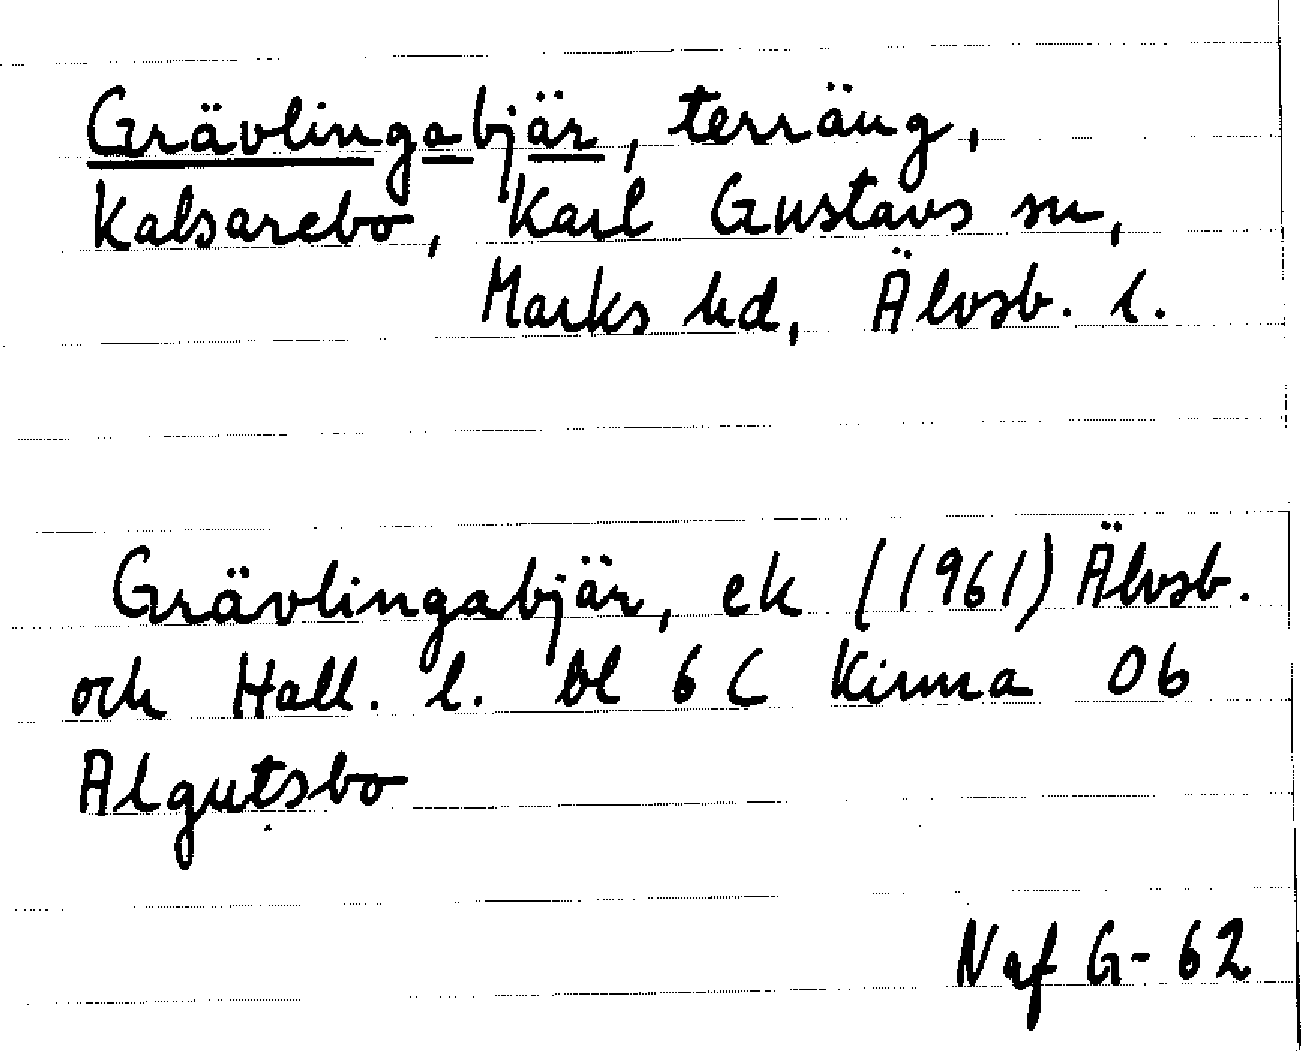 Grävlingabjär, terräng,
Kalsarebo, Karl Gustavs sn,
Marks hd, Älvsb. l.
Grävlingabjär, ek (1961) Älvsb.
och Hall. l. bl 6 C Kinna 0b
Algutsbo
Naf G-62